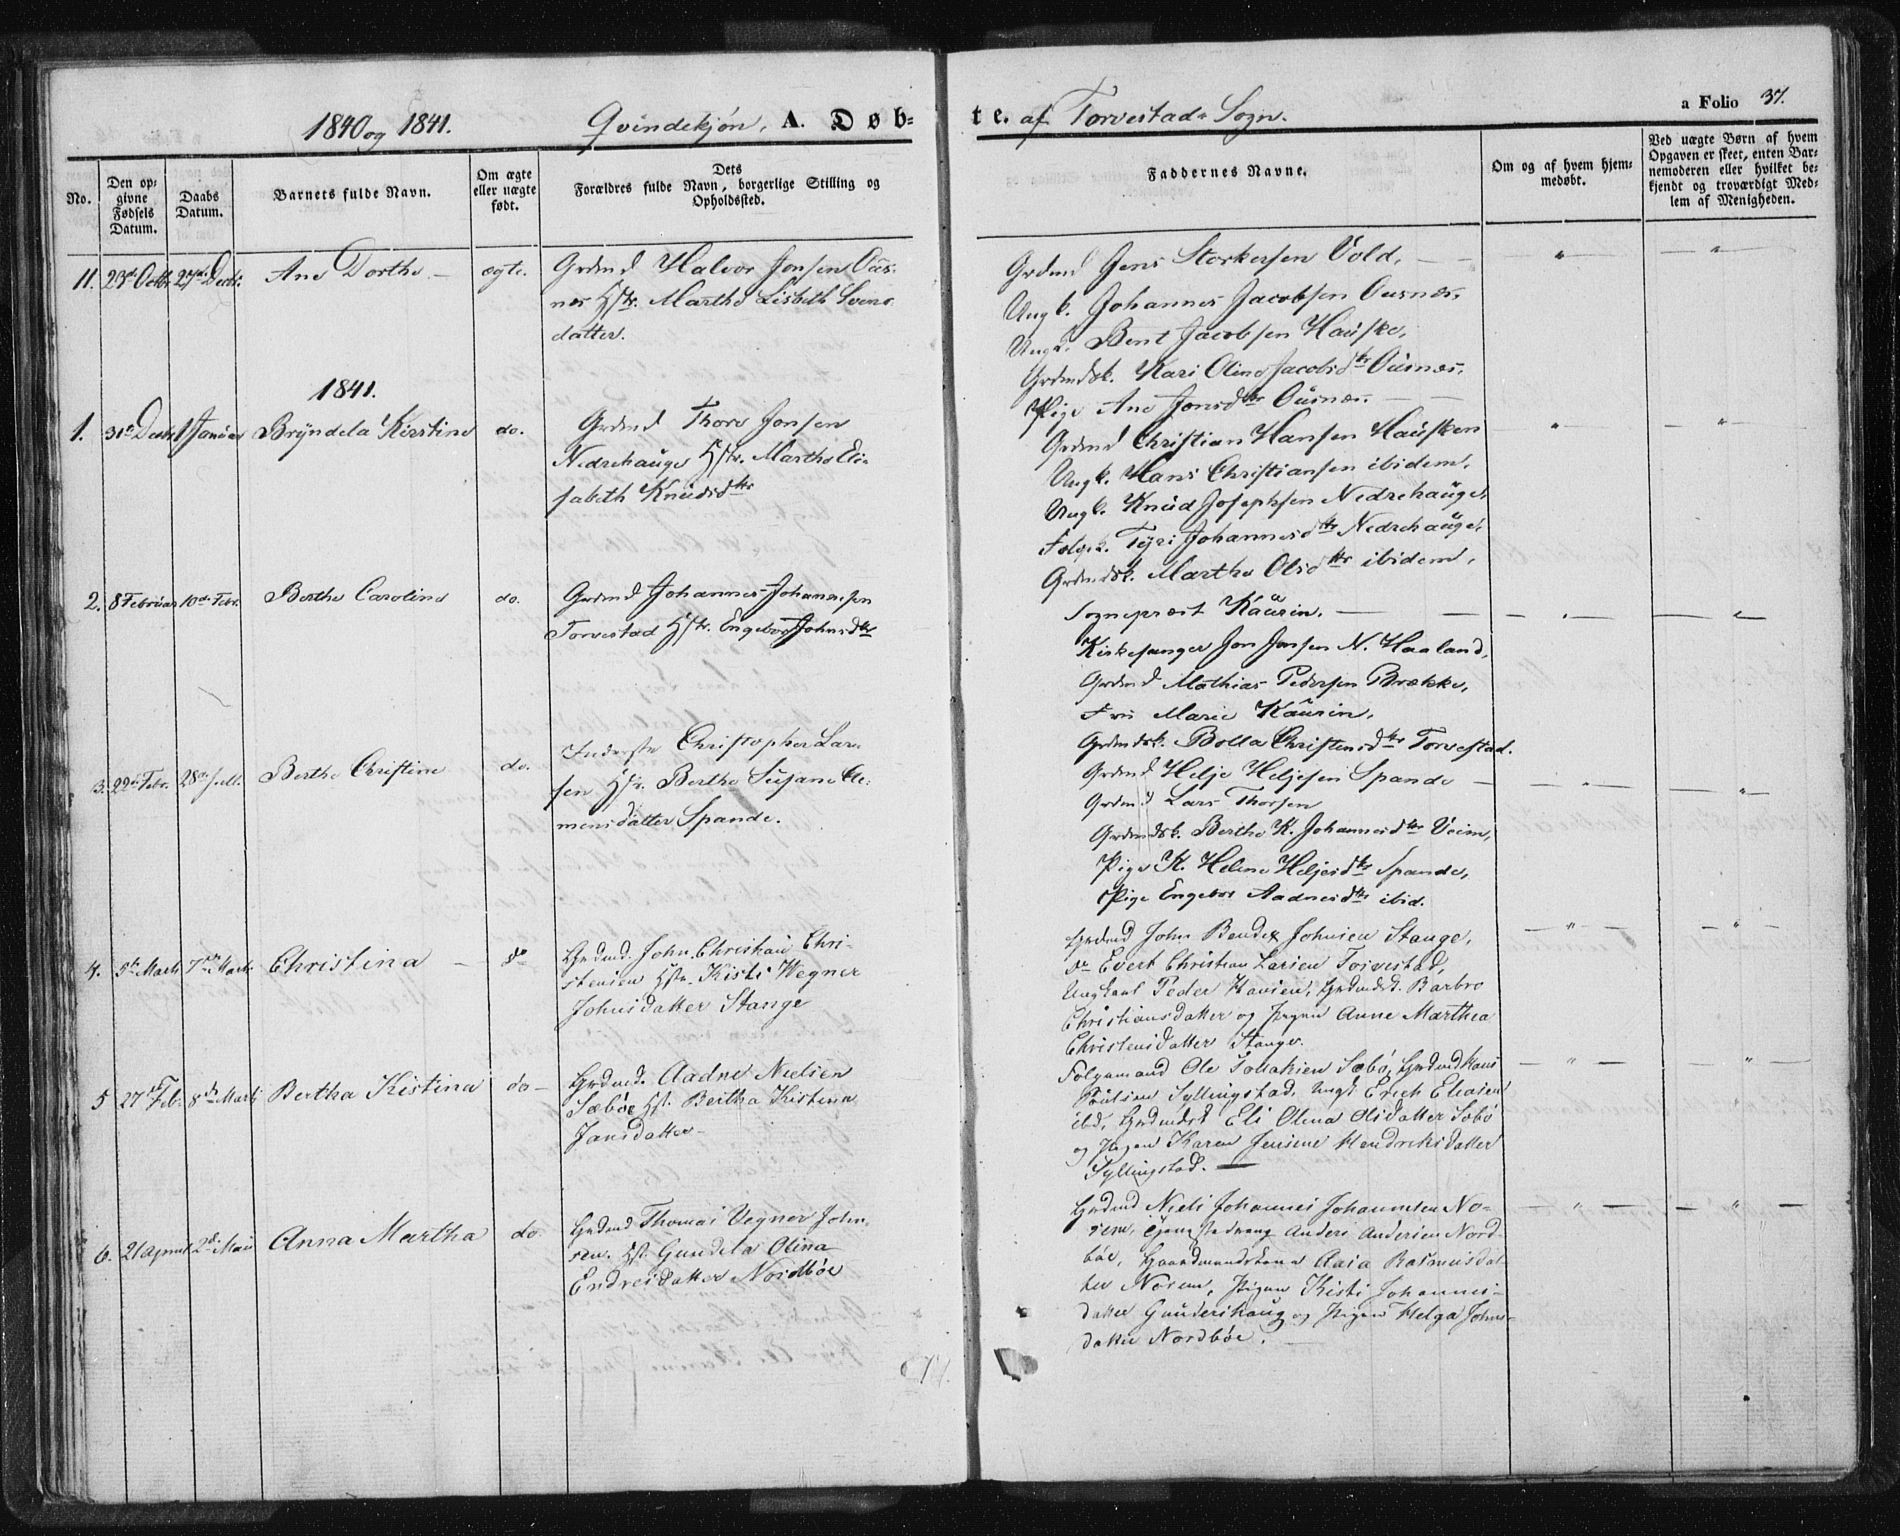 1840 og 1841. Qvindekjøn. A. Døb-
te. af Torvestad Sogn.
a Folio 37.
No.
Den op-
givne
Fødsels
Datum.
Daabs
Datum.
Barnets fulde Navn.
Om ægte
eller uægte
født.
Dets
Forældres fulde Navn, borgerlige Stilling og
Opholdssted.
Faddernes Navne.
Om og af hvem hjem-
medøbt.
Ved uægte Børn af hvem
Opgaven er skeet, enten Bar-
nemoderen eller hvilket be-
kjendt og troværdigt Med-
lem af Menigheden.
11. 23de Octbr. 27de Decbr. Ane Dorthe ægte.
Grdmd Halvor Jonsen Ous-
nes Hstr. Marthe Lisbeth Svens-
datter.
Grdmd Jens Storkersen Vold.
Ungk. Johannes Jacobsen Ousnes.
Ungk. Bent Jacobsen Hauske.
Grdmdsk. Kari Oline Jacobsdtr Ousnes.
Pige Ane Jonsdtr Ousnes.
1841.
1. 31te Decbr 1 Januar Bryndela Kirstine do.
Grdmd Thore Jonsen
Nedrehauge Hstr. Marthe Eli-
sabeth Knudsdtr
Grdmd Christian Hansen Hausken
Ungk. Hans Christiansen ibidem.
Ungk. Knud Josephsen Nedrehauge.
Tyri Johannesdtr Nedrehauge.
Grdmdsk. Marthe Olsdtr ibidem.
2. 8 Februar 10de Febr. Berthe Caroline do.
Grdmd Johannes Johannesen
Torvestad Hstr. Engebor Johnsdtr
Sognepræst Kaurin.
Kirkesanger Jon Jonsen N. Haaland.
Grdmd Mathias Pedersen Brække.
Fru Marie Kaurin.
Grdmdsk. Bolla Christensdtr Torvestad.
3. 22de Febr. 28de Berthe Christine do.
Inderste Christopher Lar-
sen Hstr. Berthe Susane Cle-
mensdatter Spande.
Grdmd Helje Heljesen Spande
Grdmd Lars Thorsen
Grdmdsk. Berthe K. Johannesdtr Veim.
Pige K. Helene Heljesdtr Spande.
Pige Engebor Aadnesdtr ibid.
4. 5te Marts 7de Marts Christina do
Grdmd. John Christian Chri-
stensen Hstr. Kisti Wegner
Johnsdatter Stange
Grdmd John Bendix Johnsen Stange,
do Evert Christian Larsen Torvestad,
Ungkarl Peder Hansen, Grdmdsk. Barbro
Christiansdatter og Pigen Anne Marthea
Christensdatter Stange.
5 27de Feb. 8de Marts Bertha Kistina do
Grdmd. Aadne Nielsen
Sæbøe Hst. Bertha Kistina
Jansdatter
Folgemand Ole Sæbø, Grdmd Hans
Poulsen Syllingstad, Ungk Erich Eliasen
ibd, Grdmdsk Eli Olena Olsdatter Sæbø
og Pigen Karen Jensine Hendriksdatter
Syllingstad.
6. 21 April 2de Mai Anna Martha do
Grdmd Thomas Vegner John-
sen. Hst. Gundela Olina
Endresdatter Nordbøe
Grdmd Niels Johannes Johannesen No-
rem, Tjenestedreng Anders Andersen Nord-
bøe, Gaardmandskone Aasa Rasmusdat-
ter Norem, Pigen Kisti Johannes-
datter Gunderihaug og Pigen Helga Johns-
datter Nordbøe.